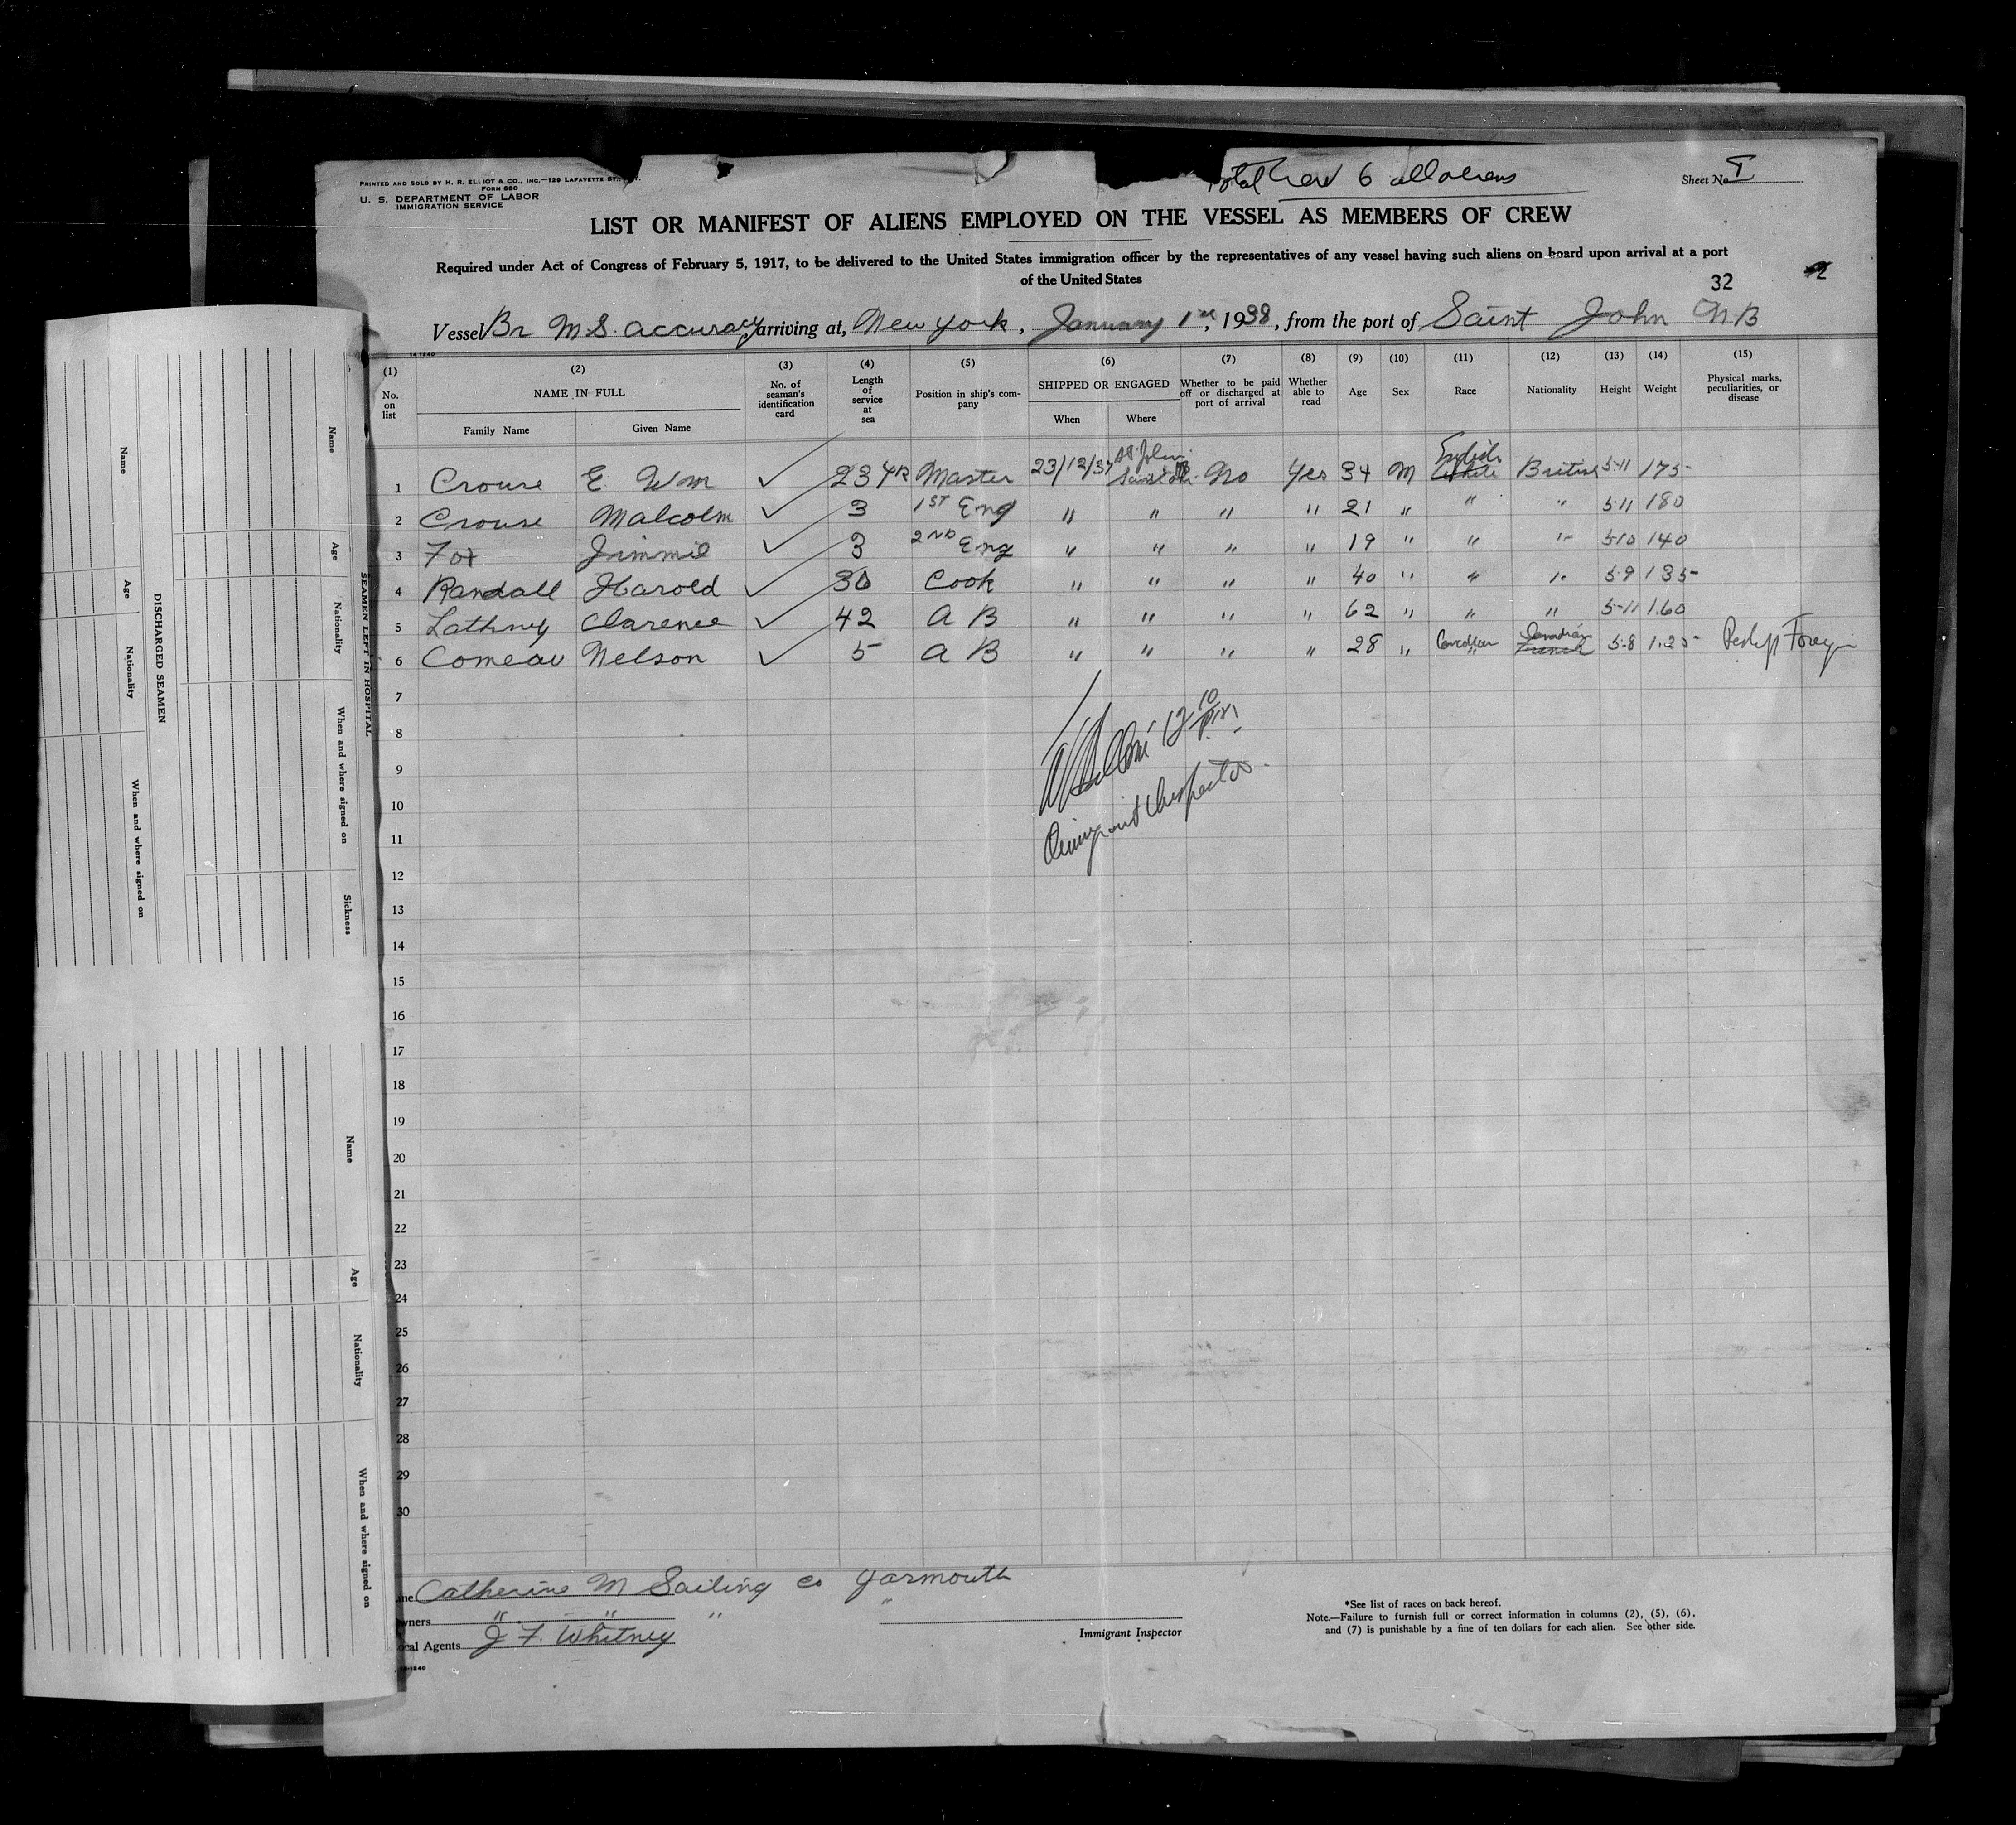 PRINTED AND SOLD BY H. R. ELLIOT & CO., INC.—129 LAFAYETTE ST.
FORM 680
U. S. DEPARTMENT OF LABOR
IMMIGRATION SERVICE
Total Crew 6 all aliens
Sheet No. I
LIST OR MANIFEST OF ALIENS EMPLOYED ON THE VESSEL AS MEMBERS OF CREW
Required under Act of Congress of February 5, 1917, to be delivered to the United States immigration officer by the representatives of any vessel having such aliens on board upon arrival at a port
of the United States
32 2
Vessel Br M.S. Accuracy arriving at, New York, January 1st, 1938, from the port of Saint John NB
14 1240
(1) No. on list
(2) NAME IN FULL
Family Name Given Name
(3) No. of seaman's identification card
(4) Length of service at sea
(5) Position in ship's company
(6) SHIPPED OR ENGAGED
When Where
(7) Whether to be paid off or discharged at port of arrival
(8) Whether able to read
(9) Age
(10) Sex
(11) Race
(12) Nationality
(13) Height
(14) Weight
(15) Physical marks, peculiarities, or disease
1 Crouse E. Wm ✓ 23 YR Master 23/12/37 St. John NB No Yes 34 M English White British 5-11 175
2 Crouse Malcolm ✓ 3 1ST Eng " " " " 21 " " " 5-11 180
3 Fox Jimmie ✓ 3 2ND Eng " " " " 19 " " " 5-10 140
4 Randall Harold ✓ 30 Cook " " " " 40 " " " 5-9 135
5 Lathney Clarence ✓ 42 A B " " " " 62 " " " 5-11 160
6 Comeau Nelson ✓ 5 A B " " " " 28 " Canadian French 5-8 125
7
8
9
10
11
12
13
14
15
16
17
18
19
20
21
22
23
24
25
26
27
28
29
30
12 10 P.M.
Immigrant Inspector
Catherine M Sailing Co Yarmouth
wners " " " "
ocal Agents J F. Whitney
Immigrant Inspector
*See list of races on back hereof.
Note.—Failure to furnish full or correct information in columns (2), (5), (6),
and (7) is punishable by a fine of ten dollars for each alien. See other side.
SEAMEN LEFT IN HOSPITAL
Name Age Nationality When and where signed on Sickness
DISCHARGED SEAMEN
Name Age Nationality When and where signed on
Name Age Nationality When and where signed on